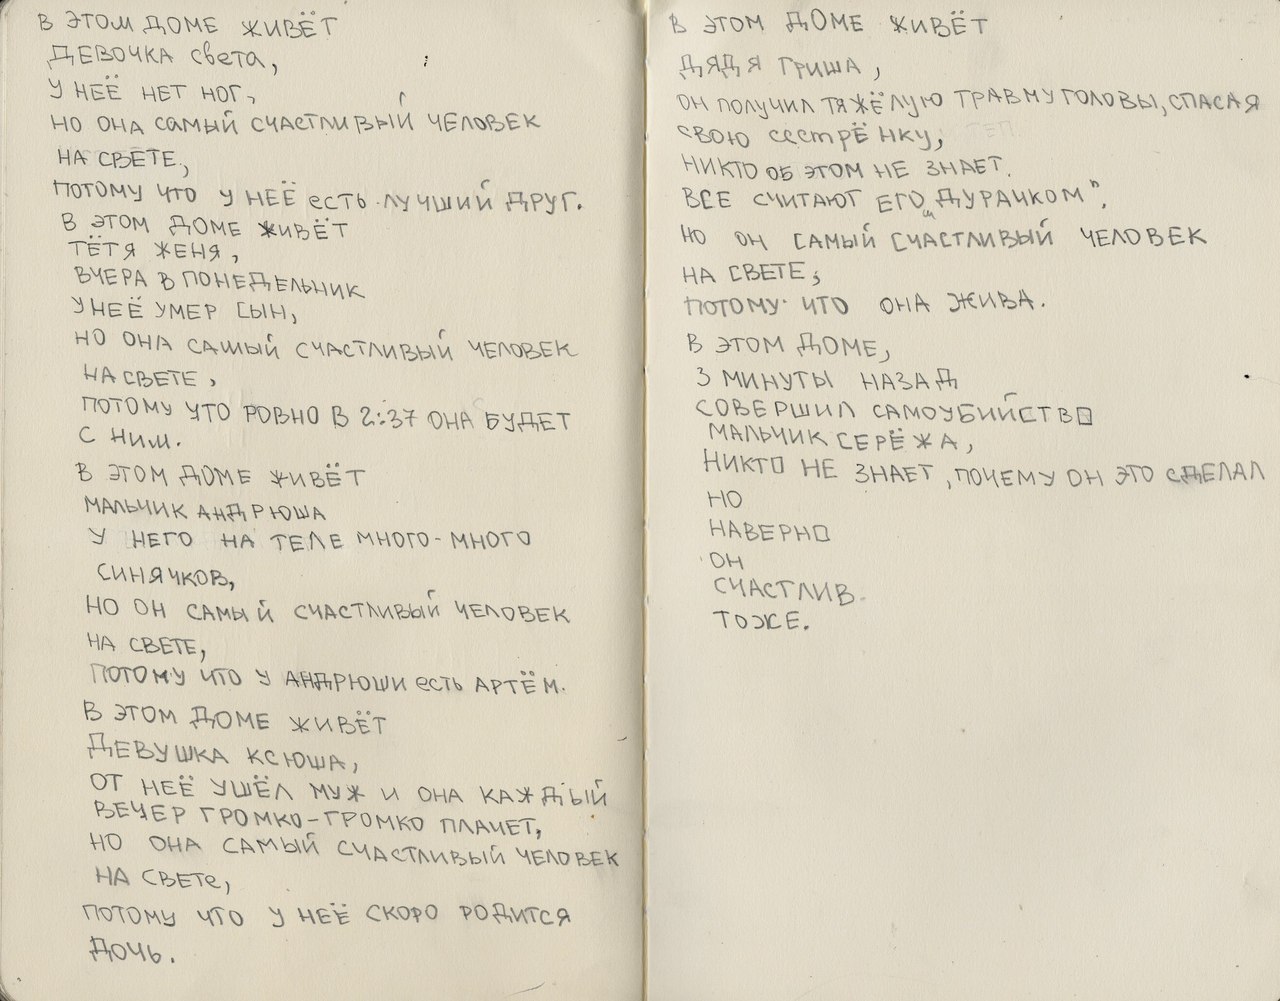 В ЭТОМ ДОМЕ ЖИВЁТ
ДЕВОЧКА Света,
У НЕЁ НЕТ НОГ,
НО ОНА САМЫЙ СЧАСТЛИВЫЙ ЧЕЛОВЕК
НА СВЕТЕ,
ПОТОМУ ЧТО У НЕЁ есть ЛУЧШИЙ ДРУГ.
В ЭТОМ ДОМЕ ЖИВЁТ
ТЁТЯ ЖЕНЯ,
ВЧЕРА В ПОНЕДЕЛЬНИК
У НЕЁ УМЕР СЫН,
НО ОНА САМЫЙ СЧАСТЛИВЫЙ ЧЕЛОВЕК
НА СВЕТЕ,
ПОТОМУ ЧТО РОВНО В 2:37 ОНА БУДЕТ
С НИМ.
В ЭТОМ ДОМЕ ЖИВЁТ
МАЛЬЧИК АНДРЮША
У НЕГО НА ТЕЛЕ МНОГО-МНОГО
СИНЯЧКОВ,
НО ОН САМЫЙ СЧАСТЛИВЫЙ ЧЕЛОВЕК
НА СВЕТЕ,
ПОТОМУ ЧТО У АНДРЮШИ есть АРТЁМ.
В ЭТОМ ДОМЕ ЖИВЁТ
ДЕВУШКА КСЮША,
ОТ НЕЁ УШЁЛ МУЖ И ОНА КАЖДЫЙ
ВЕЧЕР ГРОМКО-ГРОМКО ПЛАЧЕТ,
НО ОНА САМЫЙ СЧАСТЛИВЫЙ ЧЕЛОВЕК
НА СВЕТе,
ПОТОМУ ЧТО У НЕЁ СКОРО РОДИТСЯ
ДОЧЬ.
В ЭТОМ ДОМЕ ЖИВЁТ
ДЯДЯ ГРИША,
ОН ПОЛУЧИЛ ТЯЖЁЛУЮ ТРАВМУ ГОЛОВЫ, СПАСАЯ
СВОЮ СЕСТРЁНКУ,
НИКТО ОБ ЭТОМ НЕ ЗНАЕТ.
ВСЕ СЧИТАЮТ ЕГО „ДУРАЧКОМ",
НО ОН САМЫЙ СЧАСТЛИВЫЙ ЧЕЛОВЕК
НА СВЕТЕ,
ПОТОМУ ЧТО ОНА ЖИВА.
В ЭТОМ ДОМЕ,
3 МИНУТЫ НАЗАД
СОВЕРШИЛ САМОУБИЙСТВО
МАЛЬЧИК СЕРЁЖА,
НИКТО НЕ ЗНАЕТ, ПОЧЕМУ ОН ЭТО СДЕЛАЛ
НО
НАВЕРНО
ОН
СЧАСТЛИВ
ТОЖЕ.